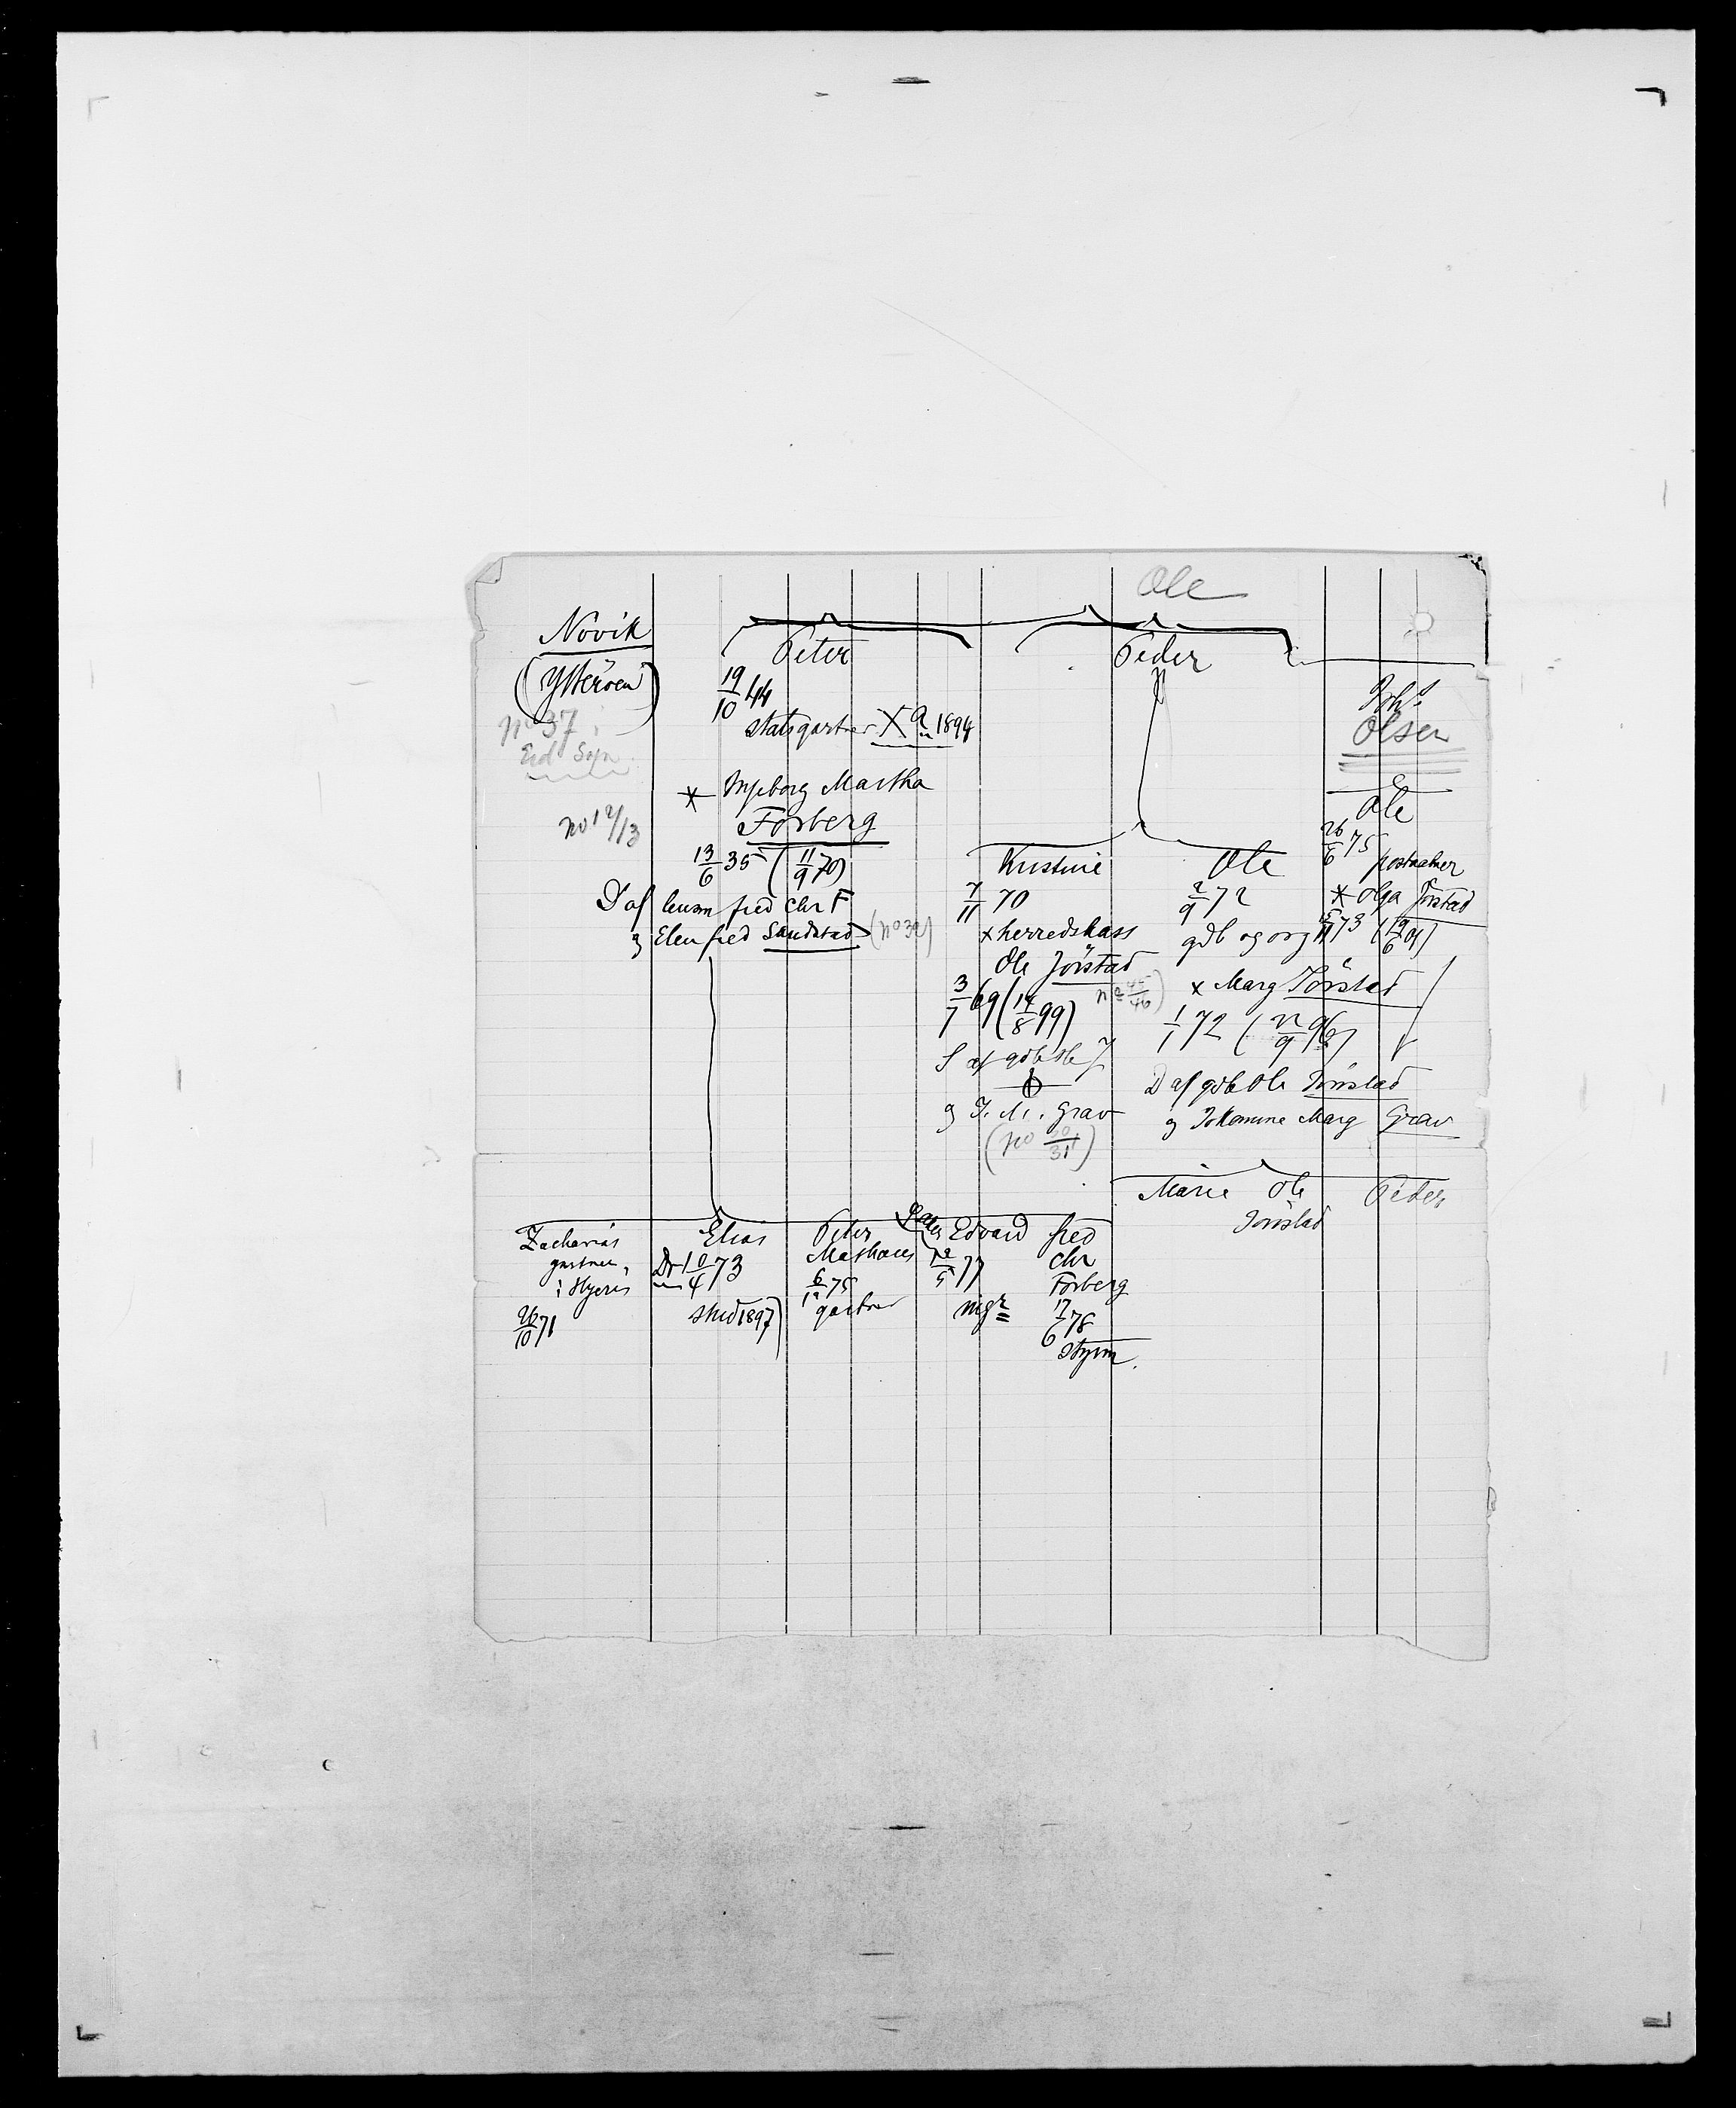 Ole
Növik
(Ytterøen)
no 37
no 12/13
Peter
19/10 44
statsgartner X a 1894
x Ingeborg Martha
Forberg
13/6 35 (11/9 70)
D af lensm fred Chr F
g Elen fred Sandstad (no 32)
Peder
Kristine
7/11 70
x herredskass
Ole Jörstad
3/7 69 (14/8 99)
S af gdb Ole J
g J. M. Grav
(no 30/31)
Ole
2/9 72
gdb og org
x Marg Jörstad
1/1 72 (22/9 96)
D af gdb Ole Jörstad
g Johanna Marg Grav
Marie Ole Peter
Jörstad
Olsen
Ole
26/6 75
x Olga Jörstad
15/11 73 (19/6 01)
Zacharias
gartner
i Hyeres
26/10 71
Elias
Dr 10/4 73
stud 1897
Peter
Mathæus
6/12 75
gartner
Edvard
12/5 77
ingr
fred
Chr
Forberg
17/6 78
styrm.